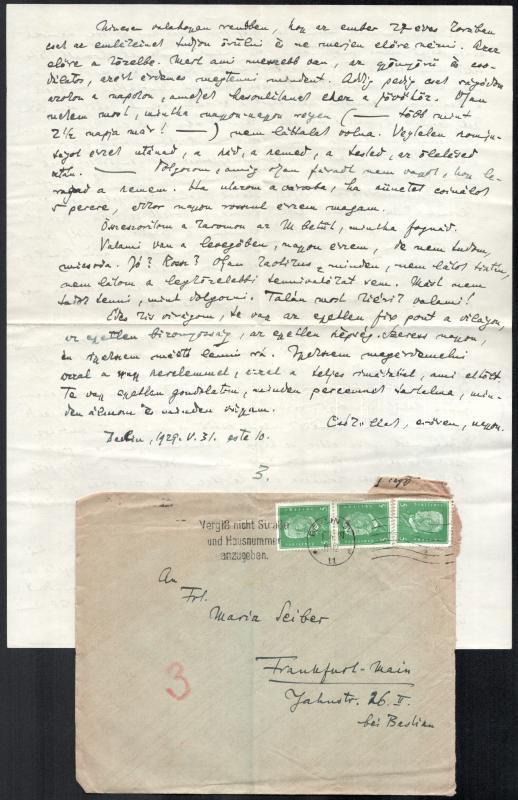 Nincsen sehogyan rendben, hogy az ember 27 éves korában
csak az emlékeinek tudjon örülni és ne merjen előre nézni. Azaz
előre a közelbe. Mert ami messzebb van, az gyönyörű és cso-
dálatos, azért érdemes megtenni mindent. Addig pedig csak
azokon a napokon, amelyek hasonlítanak ehez a jövőhöz. Olyan
nekem most, mintha nagyon-nagyon régen (— több mint
2½ napja már! —) nem láttalak volna. Végtelen szomjú-
ságot érzek utánad, a szád, a szemed, a tested, az ölelésed
után. — Dolgozom, amíg olyan fáradt nem vagyok, hogy le-
ragad a szemem. Ha utazom a városba, ha szünetet csinálok
5 percre, akkor nagyon rosszul érzem magam.
Összeszorítom a karomon az M betűt, mintha fognád.
Valami van a levegőben, nagyon érzem, de nem tudom,
micsoda. Jó? Rossz? Olyan kaotikus minden, nem látok tisztán,
nem látom a legközelebbi tennivalókat sem. Mást nem
tudok tenni, mint dolgozni. Talán most kisül valami!
Édes kis virágom, te vagy az egyetlen fix pont a világon,
az egyetlen bizonyosság, az egyetlen szépség. Szeress nagyon,
én igyekszem méltó lenni rá. Igyekszem megérdemelni
azzal a nagy szerelemmel, ezzel a teljes imádattal, ami eltölt.
Te vagy egyetlen gondolatom, minden percemnek tartalma, min-
den álmom és minden vágyam.
Csókollak, erősen, nagyon.
Berlin, 1929. V. 31. este 10.
3.
Vergiß nicht Straße
und Hausnummer
anzugeben.
11
5 5 5
An
Frl.
Maria Seiber
Frankfurt-Main
Jahnstr. 26. II.
bei Bastian
3